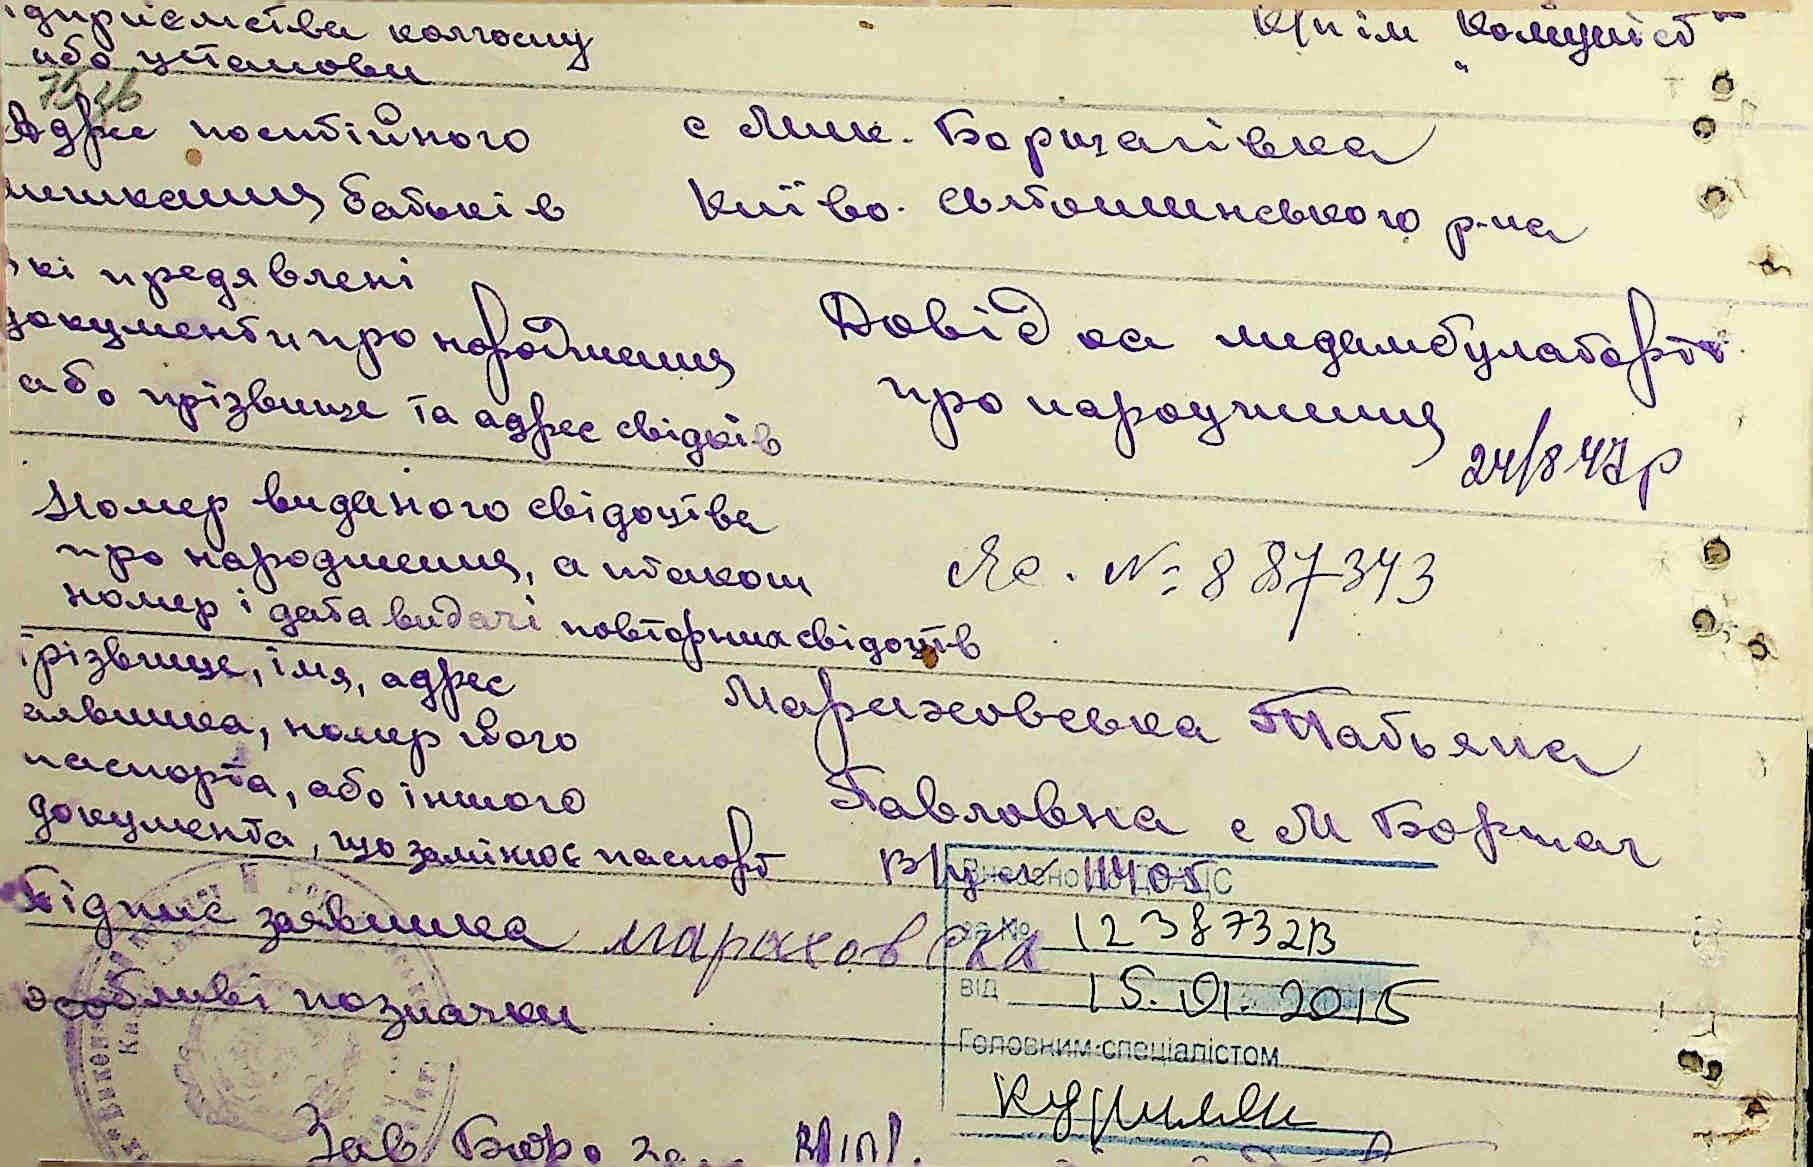 підприємства колгоспу
або установи
к/п ім "Комуніст"
Адрес постійного
мешкання батьків
с Мик. Борщагівка
Київо. Святошинського р-на
які предявлені
документи про народження
або прізвище та адрес свідків
Довідка медамбулаторії
про народження
24/8 47р
Номер виданого свідоцтва
про народження, а також
номер і дата видачі повторних свідоцтв
Яс. № 887343
прізвище, імя, адрес
заявника, номер його
паспорта, або іншого
документа, що замінює паспорт
Мариховська Татьяна
Павловна с М Борщаг
Підпис заявника
Мараховска
особливі позначки
Внесено до ДРАЦС
за № 1238732В
від 15.01.2015
Головним спеціалістом
Зав Бюро